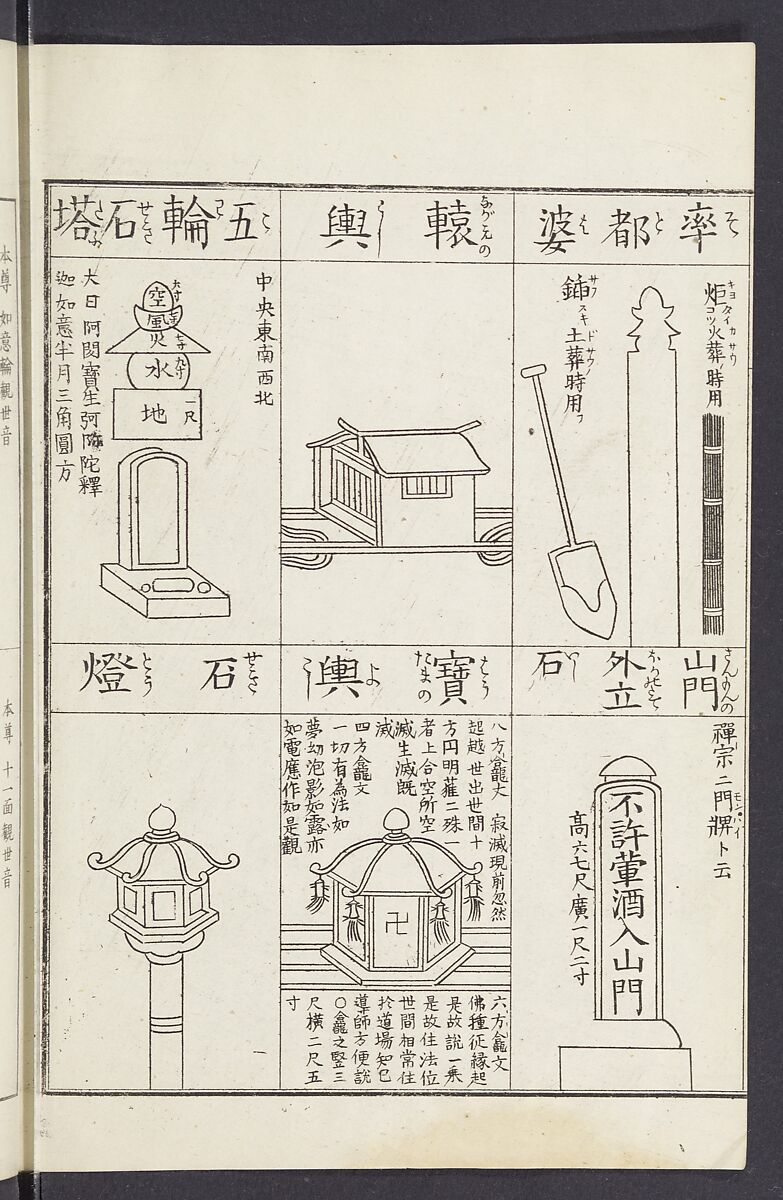 率都婆
そとば
炬火葬ノ時用
キヨ タイ カサウ
コツ
鍤土葬時用フ
サフ スキ ドサウノ
轅輿
ながえの こし
五輪石塔
ごりんせきたふ
中央東南西北
空
風
火
水
地
一尺
大日 阿閦寶生弥陀釋
迦如意半月三角圓方
山門外立石
さんもんの いし
禪宗ニ門牌ト云
モンパイ
不許葷酒入山門
高六七尺廣一尺二寸
寶輿
はう たまの よ こし
八方龕文 寂滅現前忽然
起越世出世間十
方円明蒦二殊一
者上合空所空
滅生滅既
滅
四方龕文
一切有為法如
夢幻泡影如露亦
如電應作如是觀
卍
六方龕文
佛種従縁起
是故説一乗
是故住法位
世間相常住
於道場知已
導師方便説
○龕之竪三
尺横二尺五
寸
石燈
せき とう
本尊 如意輪觀世音
本尊 十一面觀世音